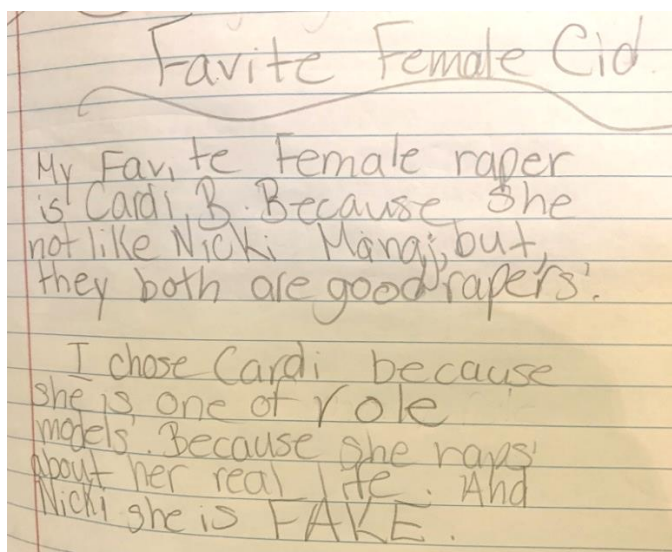 Favite Female Cid
My Favite Female raper
is Cardi B. Because she
not like Nicki Manaj, but,
they both are good rapers.
I chose Cardi because
she is one of role
models. Because she raps
about her real life. And
Nicki she is FAKE.